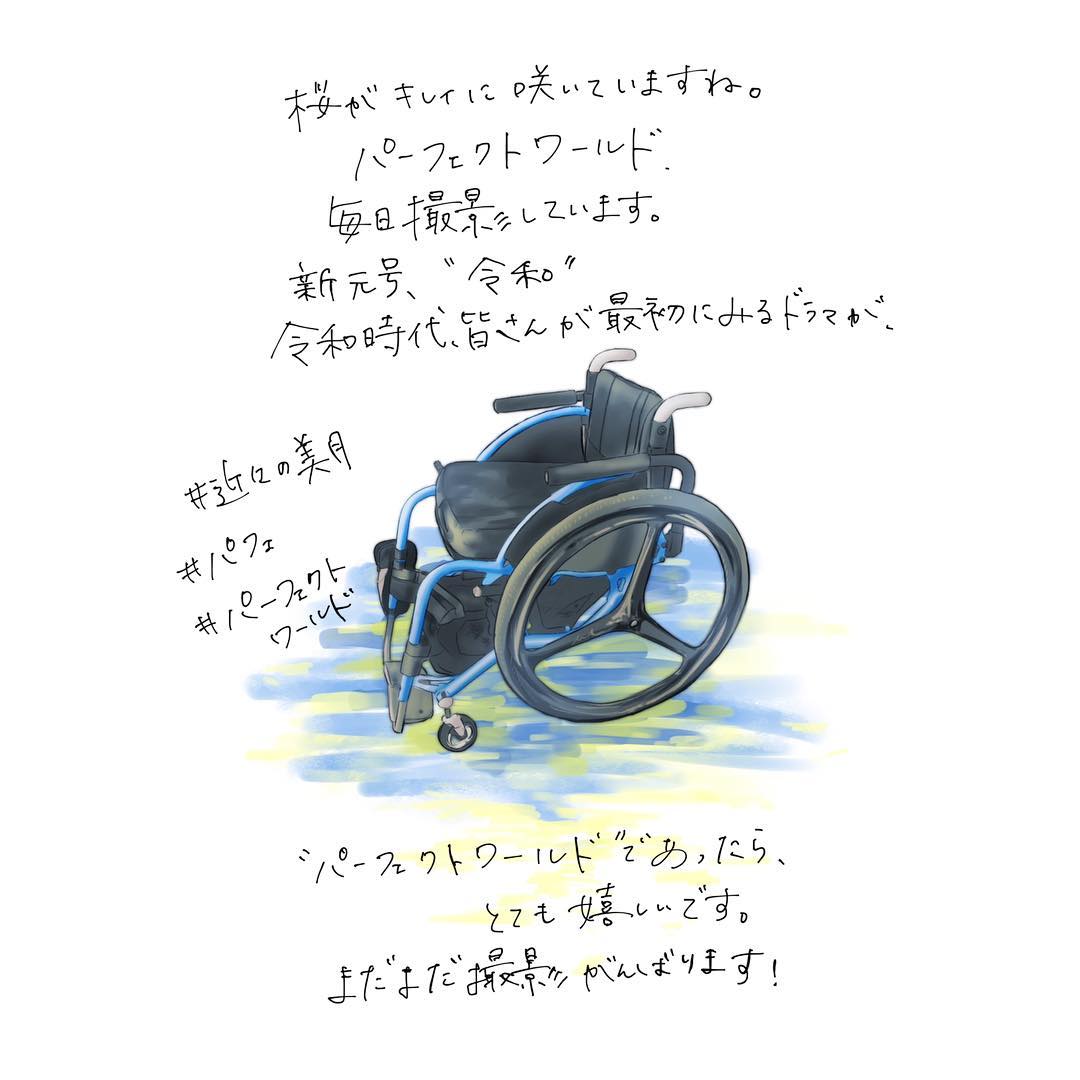 桜がキレイに咲いていますね。
パーフェクトワールド、
毎日撮影しています。
新元号、〝令和〟
令和時代、皆さんが最初にみるドラマが、
#近々の美月
#パフェ
#パーフェクト
ワールド
〝パーフェクトワールド〟であったら、
とても嬉しいです。
まだまだ撮影がんばります!